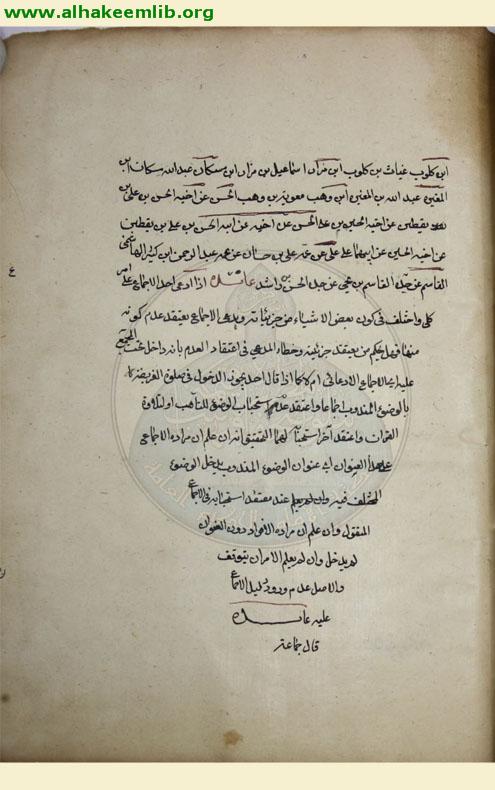 www.alhakeemlib.org
ابن كلوب غياث بن كلوب ابن مرار اسماعيل بن مرار ابن مسكان عبدالله مسكان ابن
المغيرة عبد الله بن المغيرة ابن وهب معوية بن وهب الحسن عن اخيه الحسن بن علي بن
يقطين عن اخيه الحسين بن علي الحسن عن اخيه عن ابيه الحسن بن علي بن يقطين
عن اخيه الحسين عن ابيهما علي علي عن عمه علي بن حسان عن عمه عبد الرحمن ابن كثير الهاشمي
القاسم عن جده القاسم بن يحيى عن جده الحسن بن راشد عائدة اذا ادعى احد الاجماع على امر
كلي واختلف في كون بعض الاشياء من جزئياته ومدعي الاجماع يعتقد عدم كونه
منها فهل يحكم من يعتقد جزئيته وخطاء المدعي في اعتقاد العدم بانه داخل تحت المجمع
عليه بالاجماع الادعائي ام لا كما اذا قال احد يجوز الدخول في صلوة الفريضة
بالوضوء المندوب اجماعا واعتقد عدم استحباب الوضوء للتاهب او لتلاوة
القران واعتقد آخر استحبابه لهما التحقيق انه ان علم ان مراده الاجماع
على هذا العنوان اي عنوان الوضوء المندوب يدخل الوضوء
المختلف فيه وان لم يعلم عند معتقد استحبابه في الاجماع
المنقول وان علم ان مراده الافراد دون العنوان
لم يدخل وان لم يعلم الامران يتوقف
والاصل عدم ورود دليل الاجماع
عليه عائدة
قال جماعة